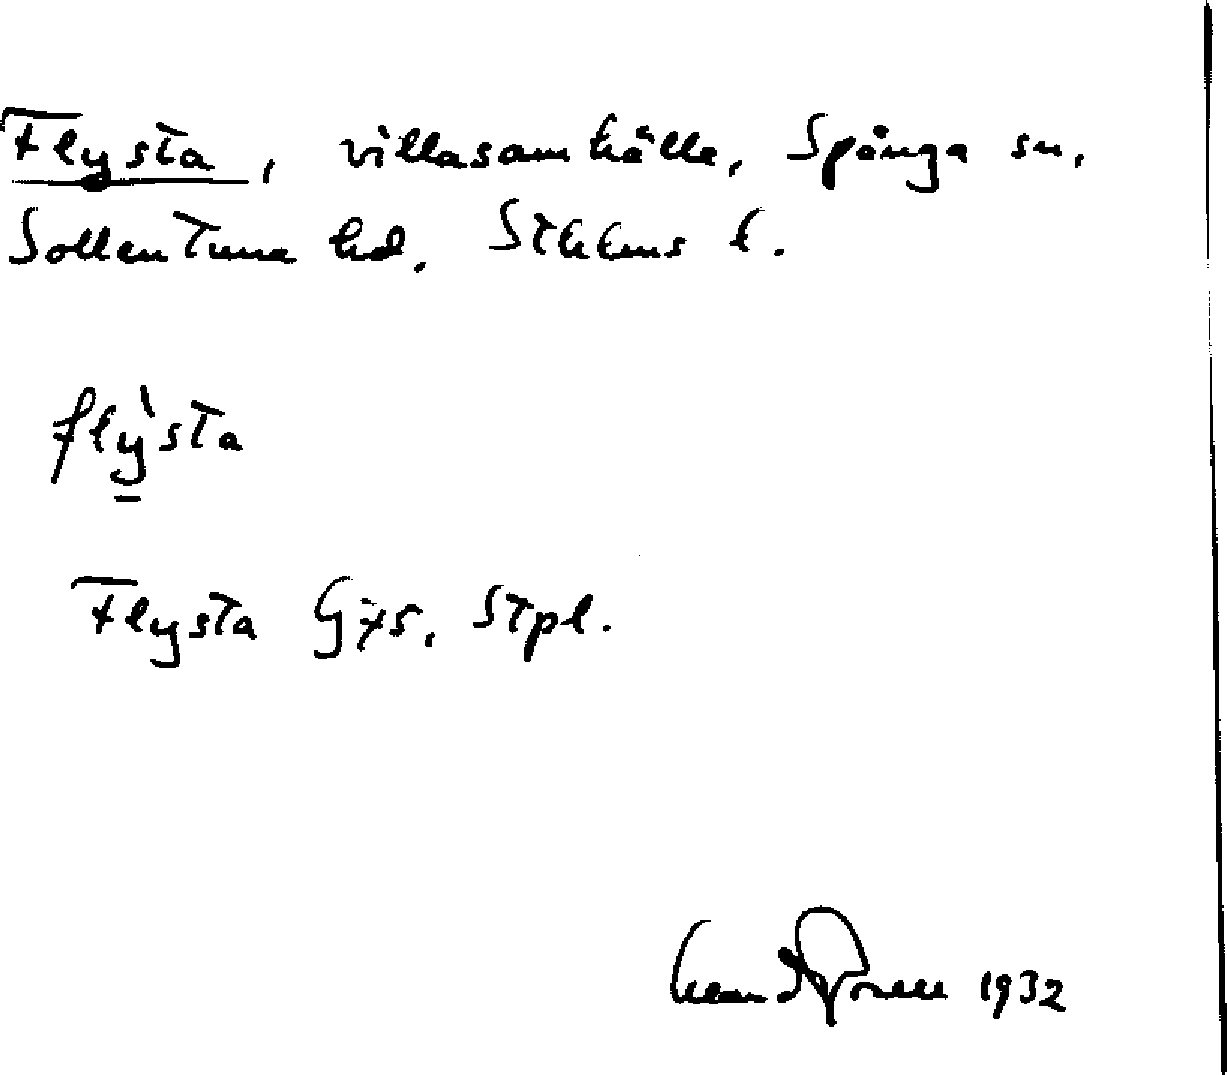 Flysta, villasamhälle, Spånga sn,
Sollentuna hd. Sthlms l.
flỳsta
Flysta G75, Stpl.
1932